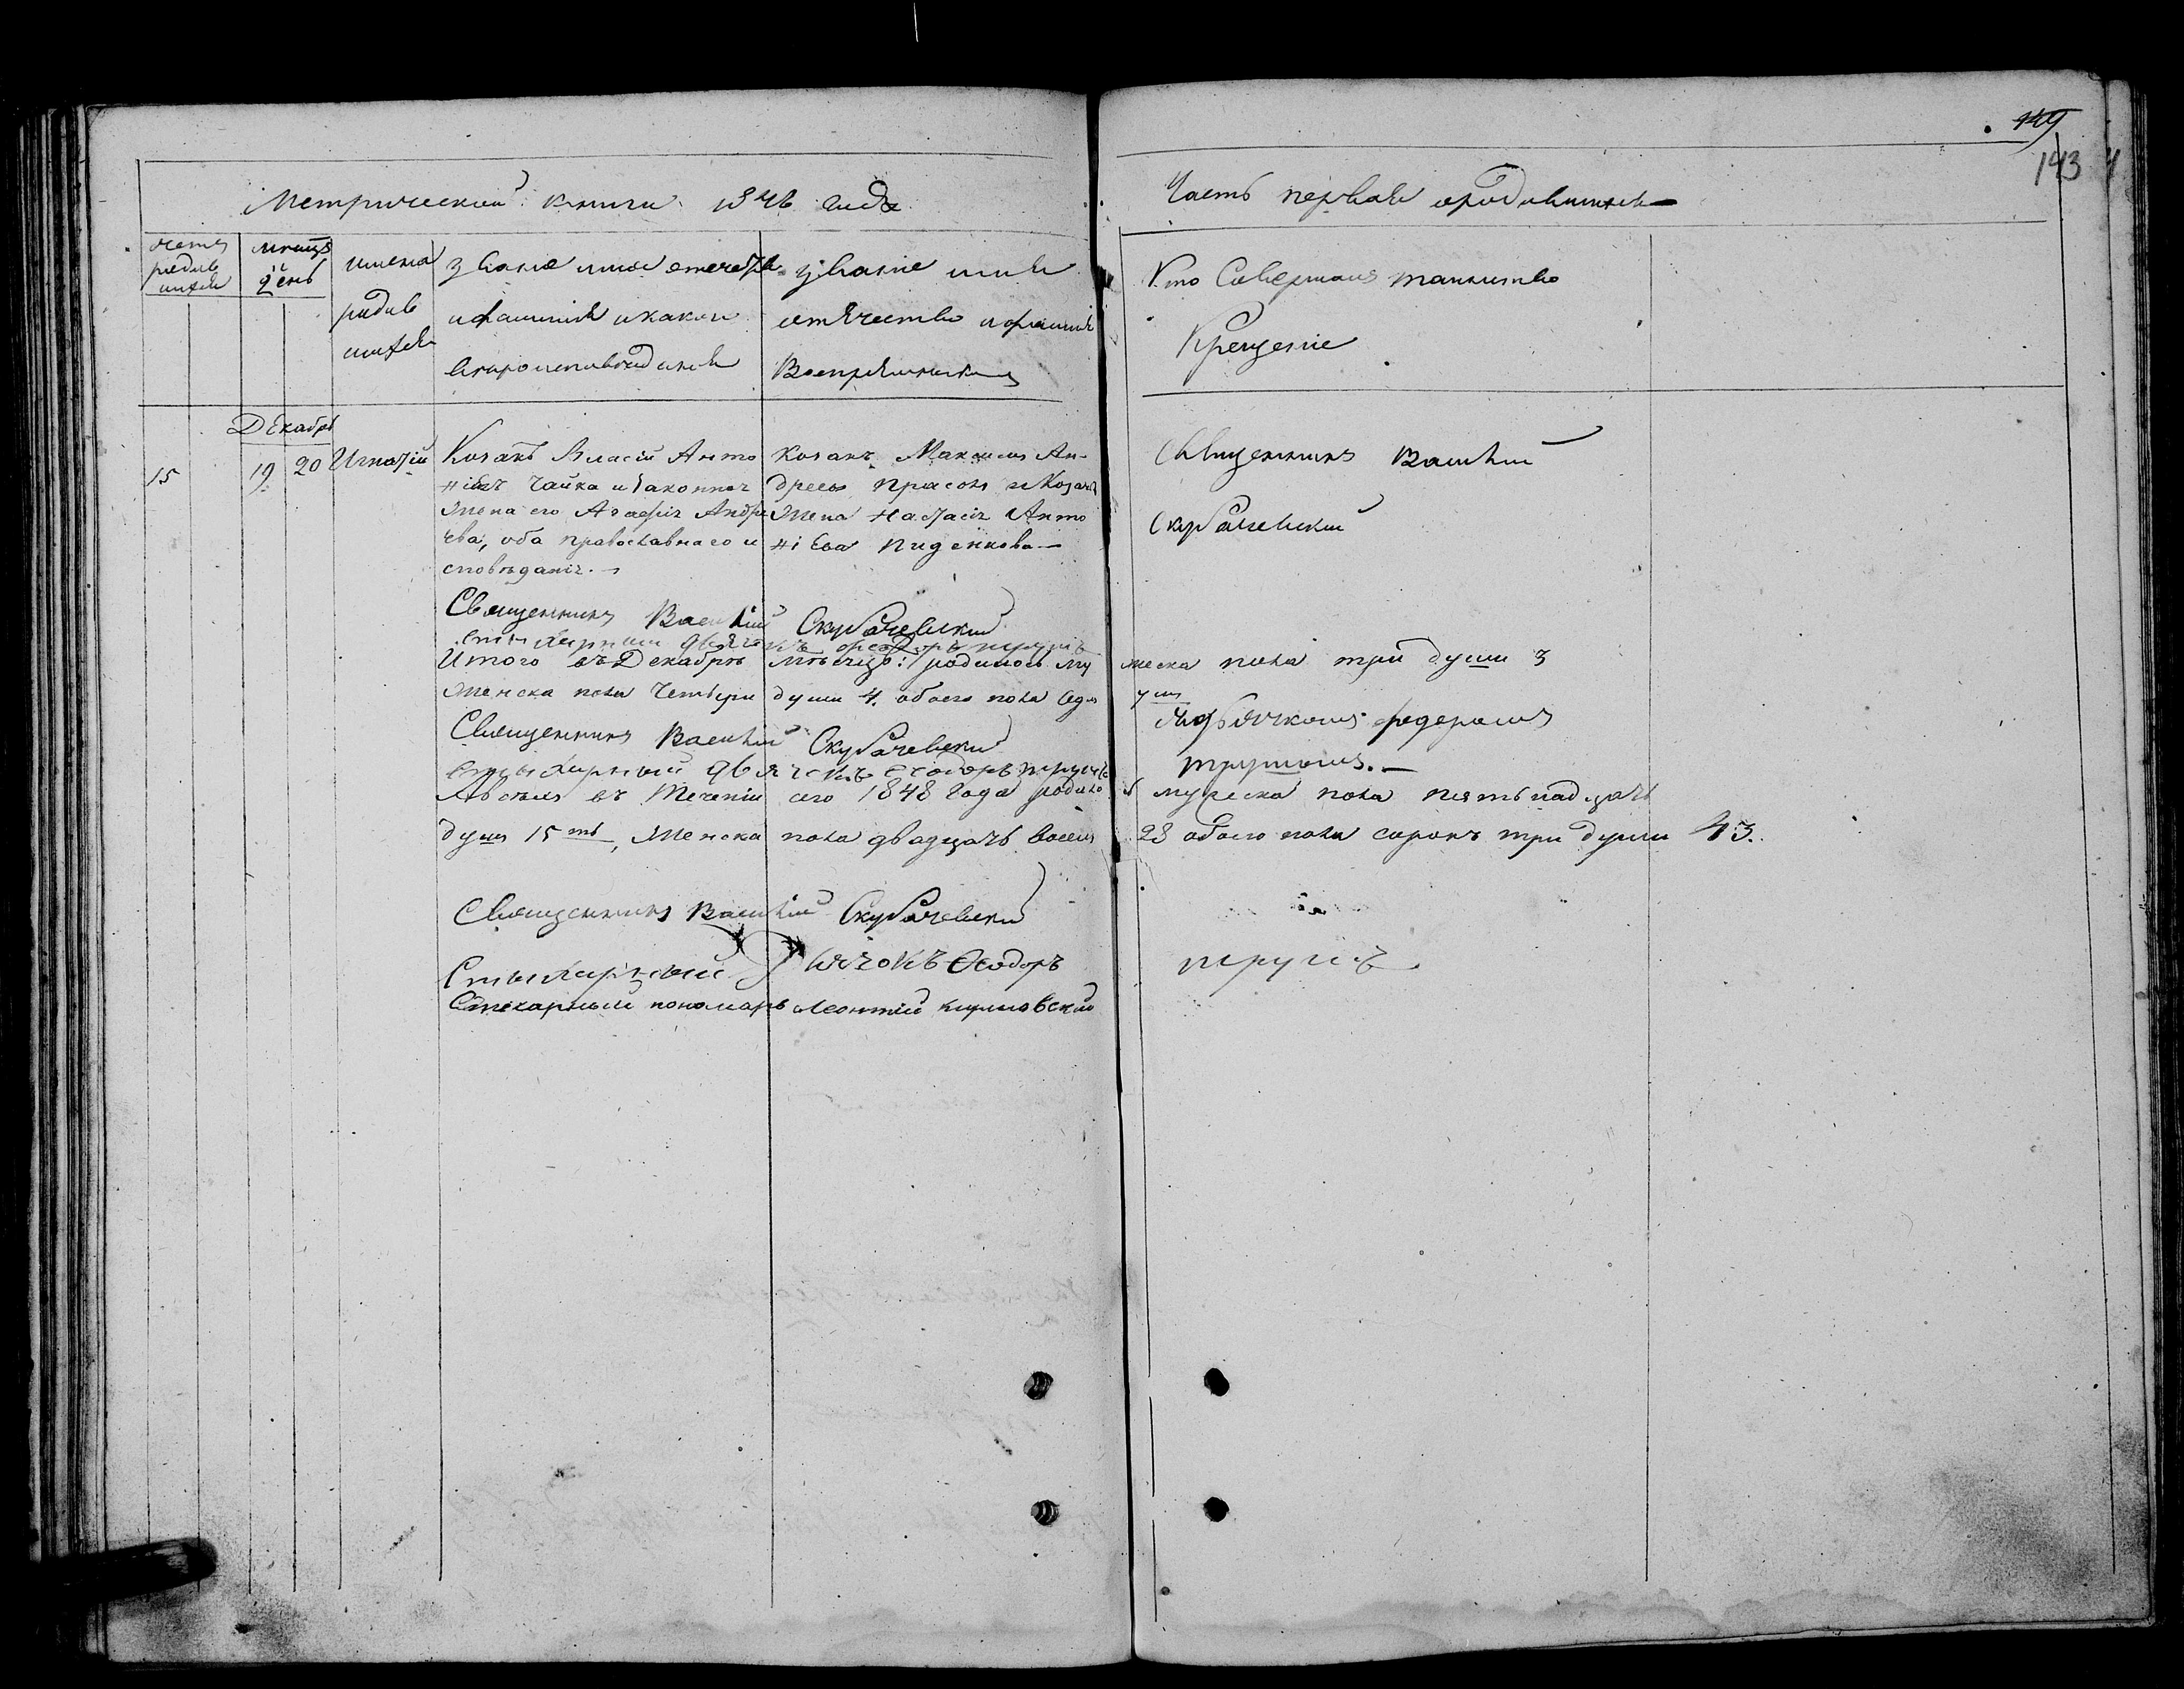 149
143
Метрической книги 1848 года
Часть первая о родившихся
счетъ родив шихся
мѣсяцъ день
имена родив шихся
званіе имя отечество и фамилія и какого вѣроисповѣданія
званіе имя отечество и фамилія Воспріемниковъ
Кто Совершалъ таинство Крещеніе
Декабрь
15 19 20 Игнатій
Козакъ Власій Анто
ніевъ Чайка и законная
жена его Агафія Андре
ева, оба православнаго и
сповѣданія. —
Козакъ Максимъ Ан-
дреевъ Прасолъ и Козача
жена Настасія Анто
ніева Пиденкова —
Священникъ Василій
Скубачевскій
Священникъ Василій Скубачевскій
Стихарный дьячокъ Ѳеодоръ
Итого въ Декабрѣ мѣсяцѣ: родилось му жеска пола три души 3
женска пола Четыри души 4. обоего пола седмъ душъ
Священникъ Василій Скубачевскій
съ дьячкомъ Федоромъ
Стихарный дьячокъ Ѳеодоръ
Авсѣхъ въ Теченіи сего 1848 Года родило ь мужеска пола пятьнадцать
душъ 15ть, Женска пола двадцать восемъ 28 обоего пола сорокъ три души 43.
Священникъ Василій Скубачевскій
Стихарный Дьячокъ Ѳеодоръ
Стихарный пономарь Леонтій